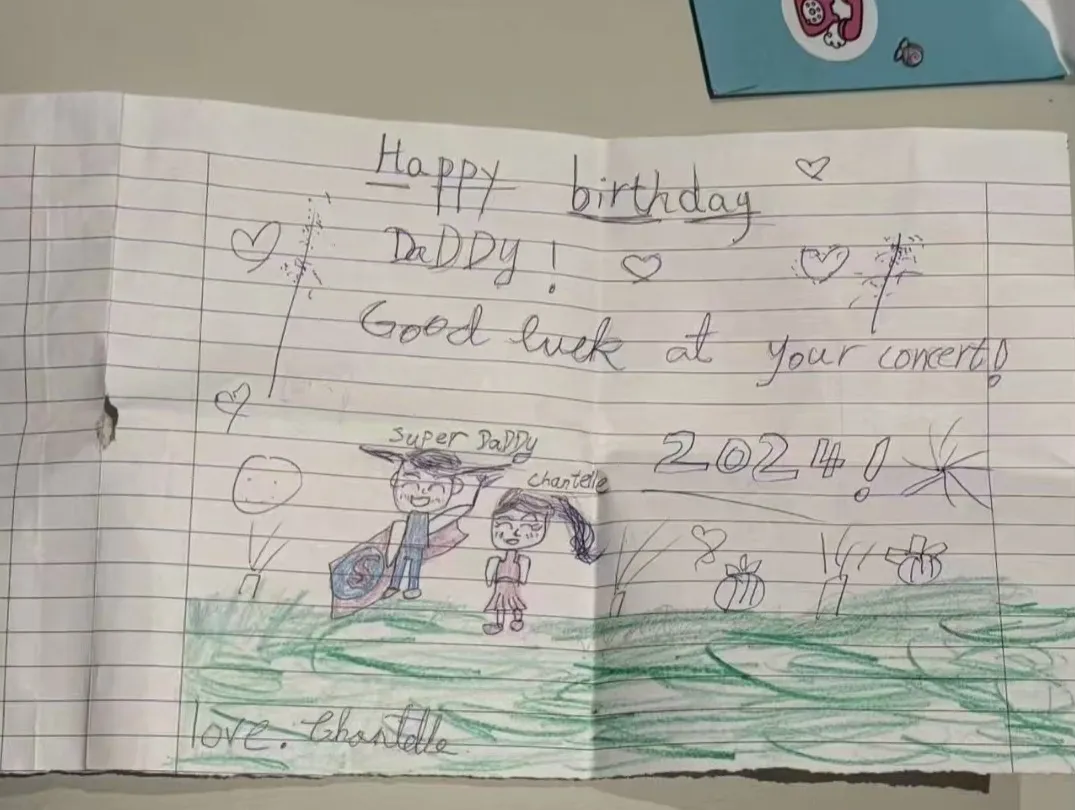 Happy birthday
DaDDy!
Good luck at your concert!
Super DaDDy
2024!
Chantelle
S
love. Chantelle